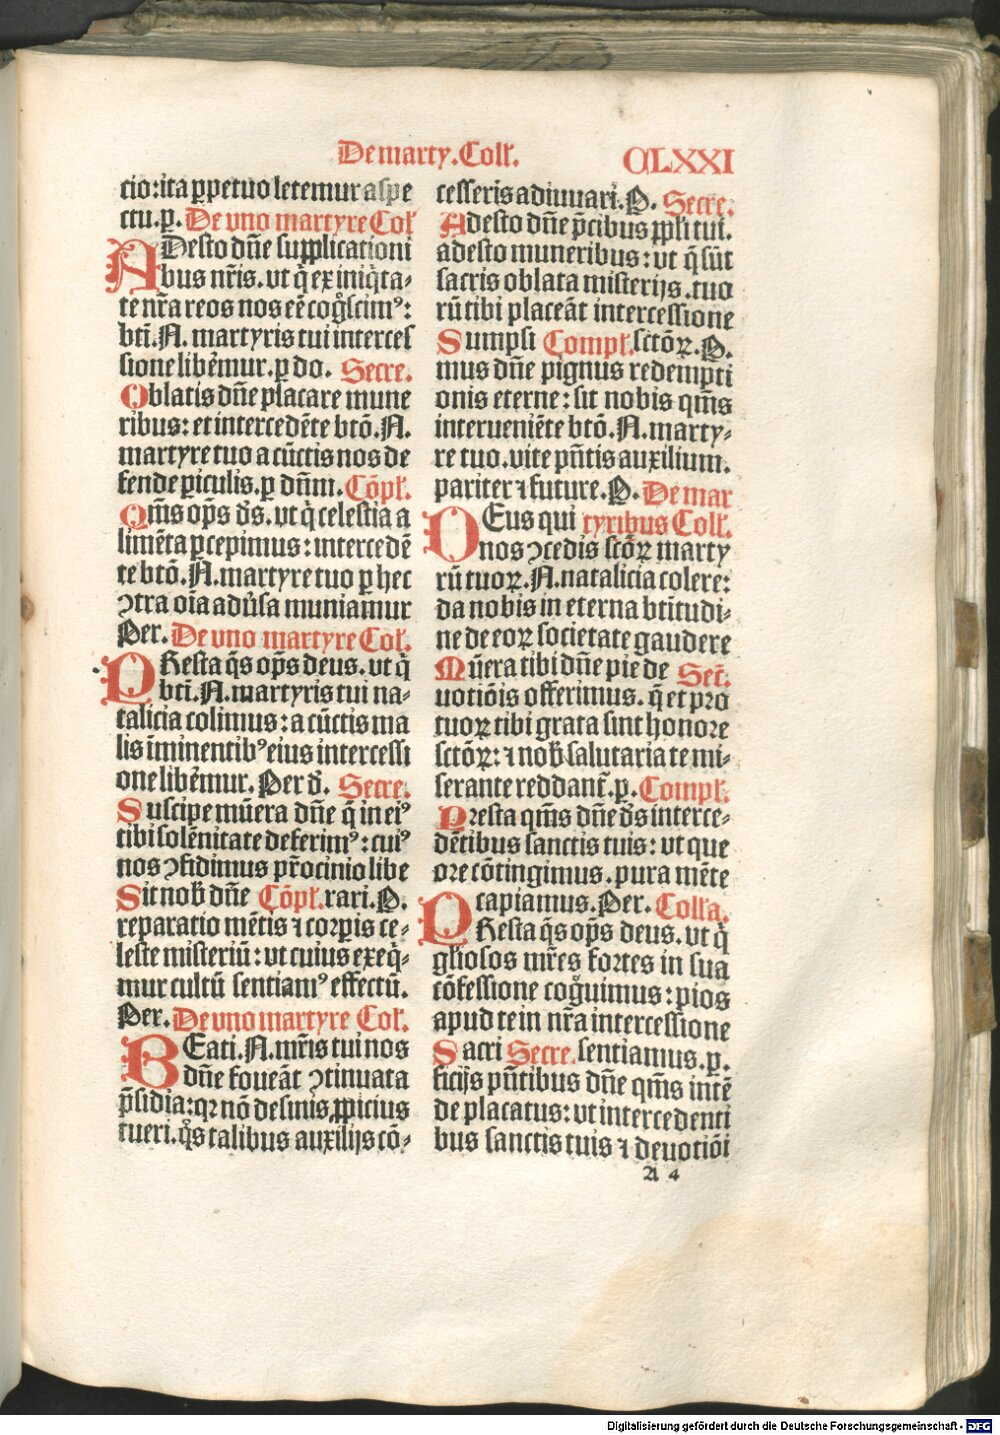 De marty. Coll̃.
CLXXI
cio: ita ꝑpetuo letemur aspe
ctu. p. De vno martyre Col̃
ADesto dn̄e supplicationi
bus nr̄is. vt q̄ ex iniq̇ta⸗
te nr̄a reos nos eē cog̊scimꝰ:
btī. N. martyris tui interces
sione libēmur. ꝑ do. Secre.
Oblatis dn̄e placare mune
ribus: et intercedēte btō. N.
martyre tuo a cūctis nos de
fende ꝑiculis. ꝑ dn̄m. Cōpl̃.
Qm̄s op̄s d̄s. vt q̄ celestia a
limēta ꝑcepimus: intercedē
te btō. N. martyre tuo ꝑ hec
ꝯtra oīa adūsa muniamur
Per. De vno martyre Col̃.
PResta q̄s op̄s deus. vt q̄
btī. N. martyris tui na⸗
talicia colimus: a cūctis ma
lis īminentibꝰ eius intercessi
one libēmur. Per d̄. Secre.
Suscipe mūera dn̄e q̄ in eiꝰ
tibi solēnitate deferimꝰ: cuiꝰ
nos ꝯfidimus pr̄ocinio libe
Sit nob̄ dn̄e Cōpl̃. rari. P.
reparatio mētis ⁊ corꝑis ce⸗
leste misteriū: vt cuius exeq̄⸗
mur cultū sentiamꝰ effectū.
Per. De vno martyre Col̃.
BEati. N. mr̄is tui nos
dn̄e foueāt ꝯtinuata
p̄sidia: qꝛ nō desinis ꝓpicius
tueri. q̊s talibus auxilijs cō⸗
cesseris adiuuari. P. Secre.
Adesto dn̄e p̄cibus ppl̄i tui.
adesto muneribus: vt q̄ sūt
sacris oblata misterijs. tuo
rū tibi placeāt intercessione
Sumpsi Compl̃. sctōꝝ. P.
mus dn̄e pignus redempti
onis eterne: sit nobis qm̄s
interueniēte btō. N. marty⸗
re tuo. vite pn̄tis auxilium.
pariter ⁊ future. P. De mar
DEus qui tyribus Coll̃.
nos ꝯcedis sctōꝝ marty
rū tuoꝝ. N. natalicia colere:
da nobis in eterna btītudi⸗
ne de eoꝝ societate gaudere
Mūera tibi dn̄e pie de Sec̄.
uotiōis offerimus. q̄ et pro
tuoꝝ tibi grata sint honore
sctōꝝ: ⁊ nob̄ salutaria te mi⸗
serante reddant̄. p. Compl̃.
Presta qm̄s dn̄e d̄s interce⸗
dētibus sanctis tuis: vt que
ore cōtingimus. pura mēte
capiamus. Per. Coll̃a.
PResta q̄s op̄s deus. vt q̄
gl̄iosos mr̄es fortes in sua
cōfessione cog̊uimus: pios
apud te in nr̄a intercessione
Sacri Secre. sentiamus. p.
ficijs pn̄tibus dn̄e qm̄s intē
de placatus: vt intercedenti
bus sanctis tuis ⁊ deuotiōi
A 4
Digitalisierung gefördert durch die Deutsche Forschungsgemeinschaft - DFG